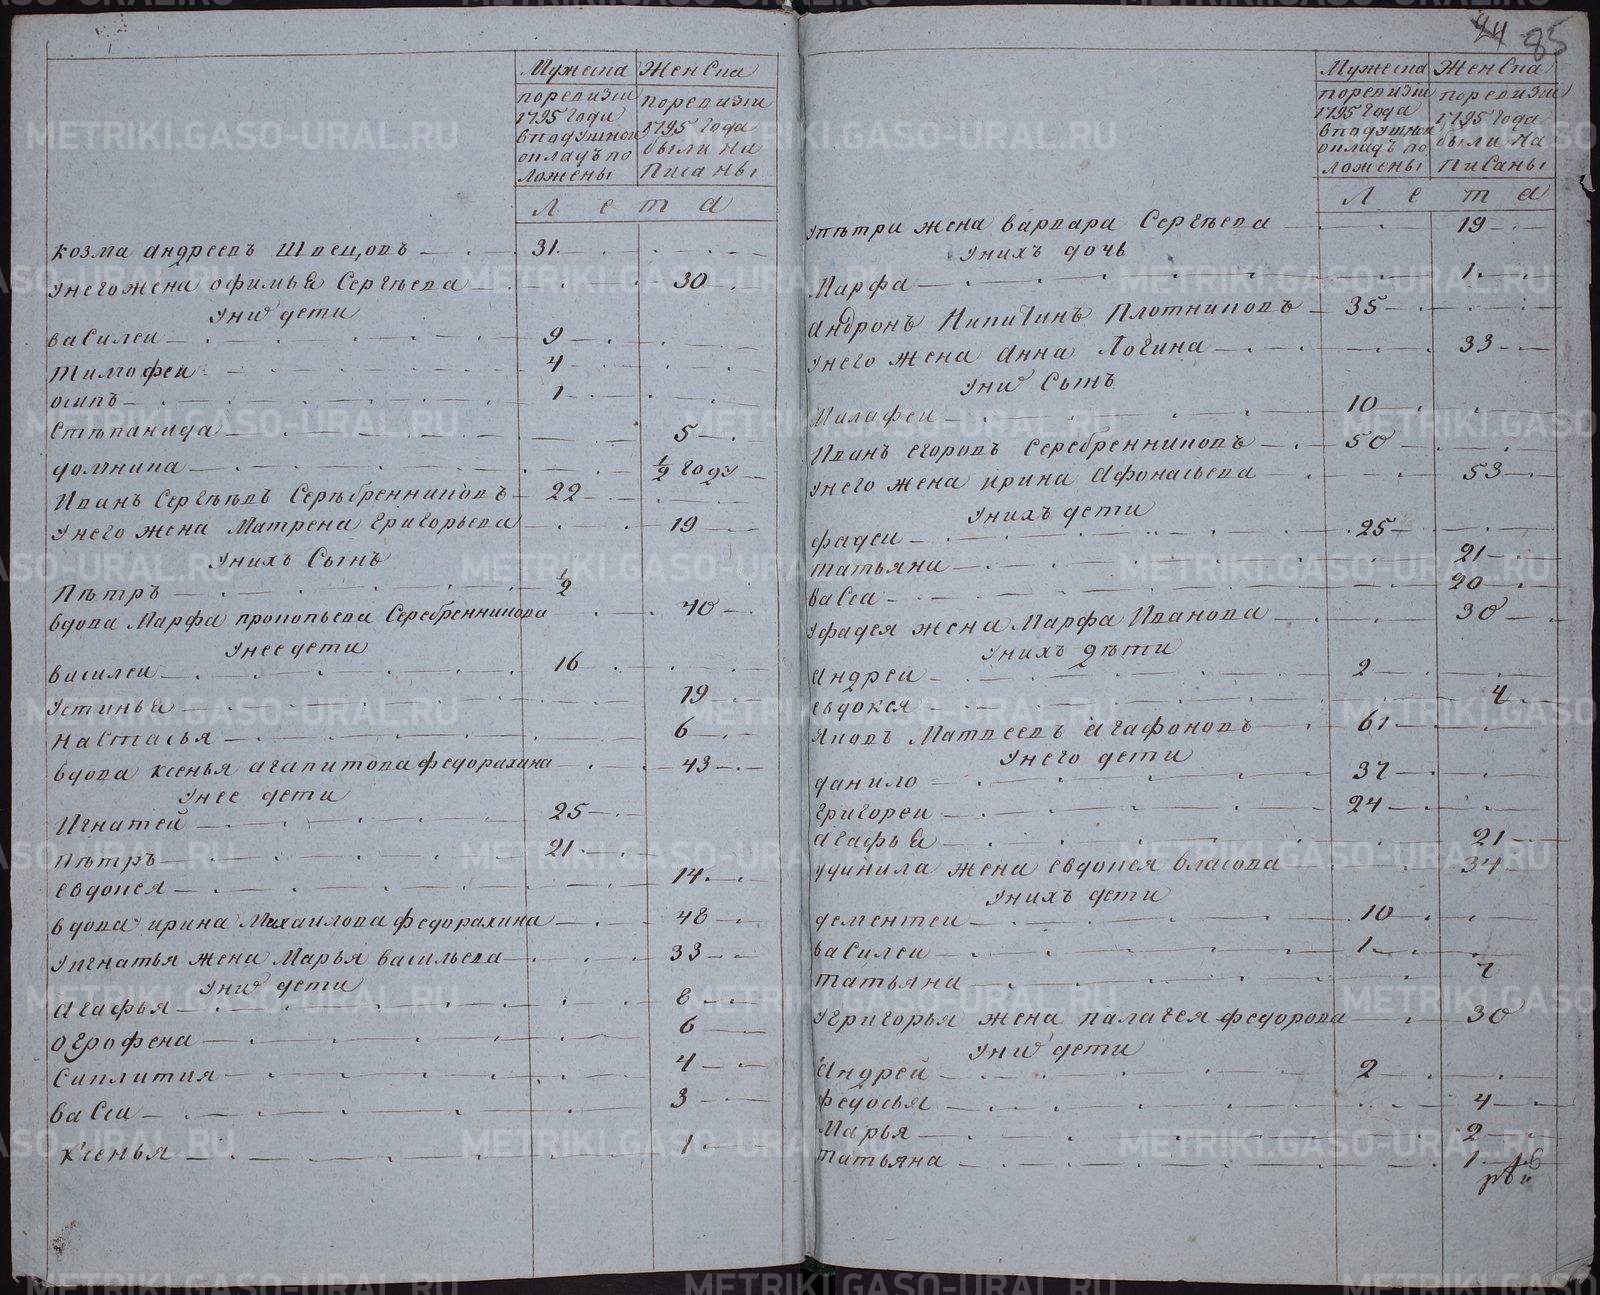 Мужеска Женска
поревизии 1795 Году вподушной окладъ положены
поревизии 1795 Года были На Писаны
Лета
козма андреевъ Швецовъ 31
унегожена офимья Сергѣева 30
уних дети
василеи 9
тимофеи 4
осипъ 1
Стѣпанида 5
домника 1/2 году
Иванъ Сергѣевъ Серѣбренниковъ 22
унего жена Матрена григорьева 19
унихъ Сынъ
Пѣтръ 1/2
вдова Марфа прокопьева Серебренникова 40
унее дети
василеи 16
устинья 19
настасья 6
вдова ксенья агапитова федорахина 43
унее дети
Игнатей 25
пѣтръ 21
евдокея 14
вдова ирина Михаилова федорахина 48
уигнатья жена Марья васильева 33
уних дети
агафья 8
огрофена 6
Сиклития 4
васса 3
ксенья 1
24 85
Мужеска Женска
поревизии 1795 года вподушной окладъ положены
поревизии 1795 года были На Писаны
Лета
упѣтра жена варвара Сергѣева 19
унихъ дочь
Марфа 1
андронъ Никитинъ Плотниковъ 35
унего жена анна Логина 33
уних Сынъ
Малафеи 10
Иванъ егоровъ Серебренниковъ 50
унего жена ирина афонасьева 53
унихъ дети
фадеи 25
татьяна 21
васса 20
уфадея жена Марфа Иванова 30
унихъ дѣти
андрей 2
евдокея 4
яковъ Матвеевъ агафоновъ 61
унего дети
данило 37
григореи 24
агафья 21
уданила жена евдокея власова 34
унихъ дети
дементеи 10
василеи 1
татьяна 7
угригорья жена палагея федорова 30
уних дети
андрей 2
федосья 4
Марья 2
татьяна 1